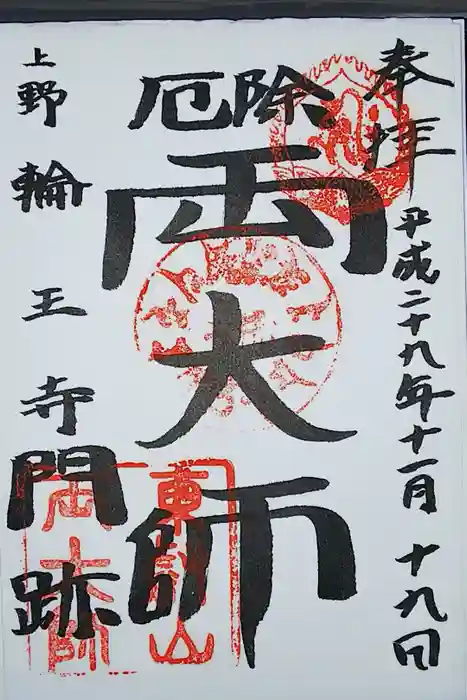 奉拝
平成二十九年十一月十九日
除厄
両大師
上野輪王寺門跡
東叡山
両大師